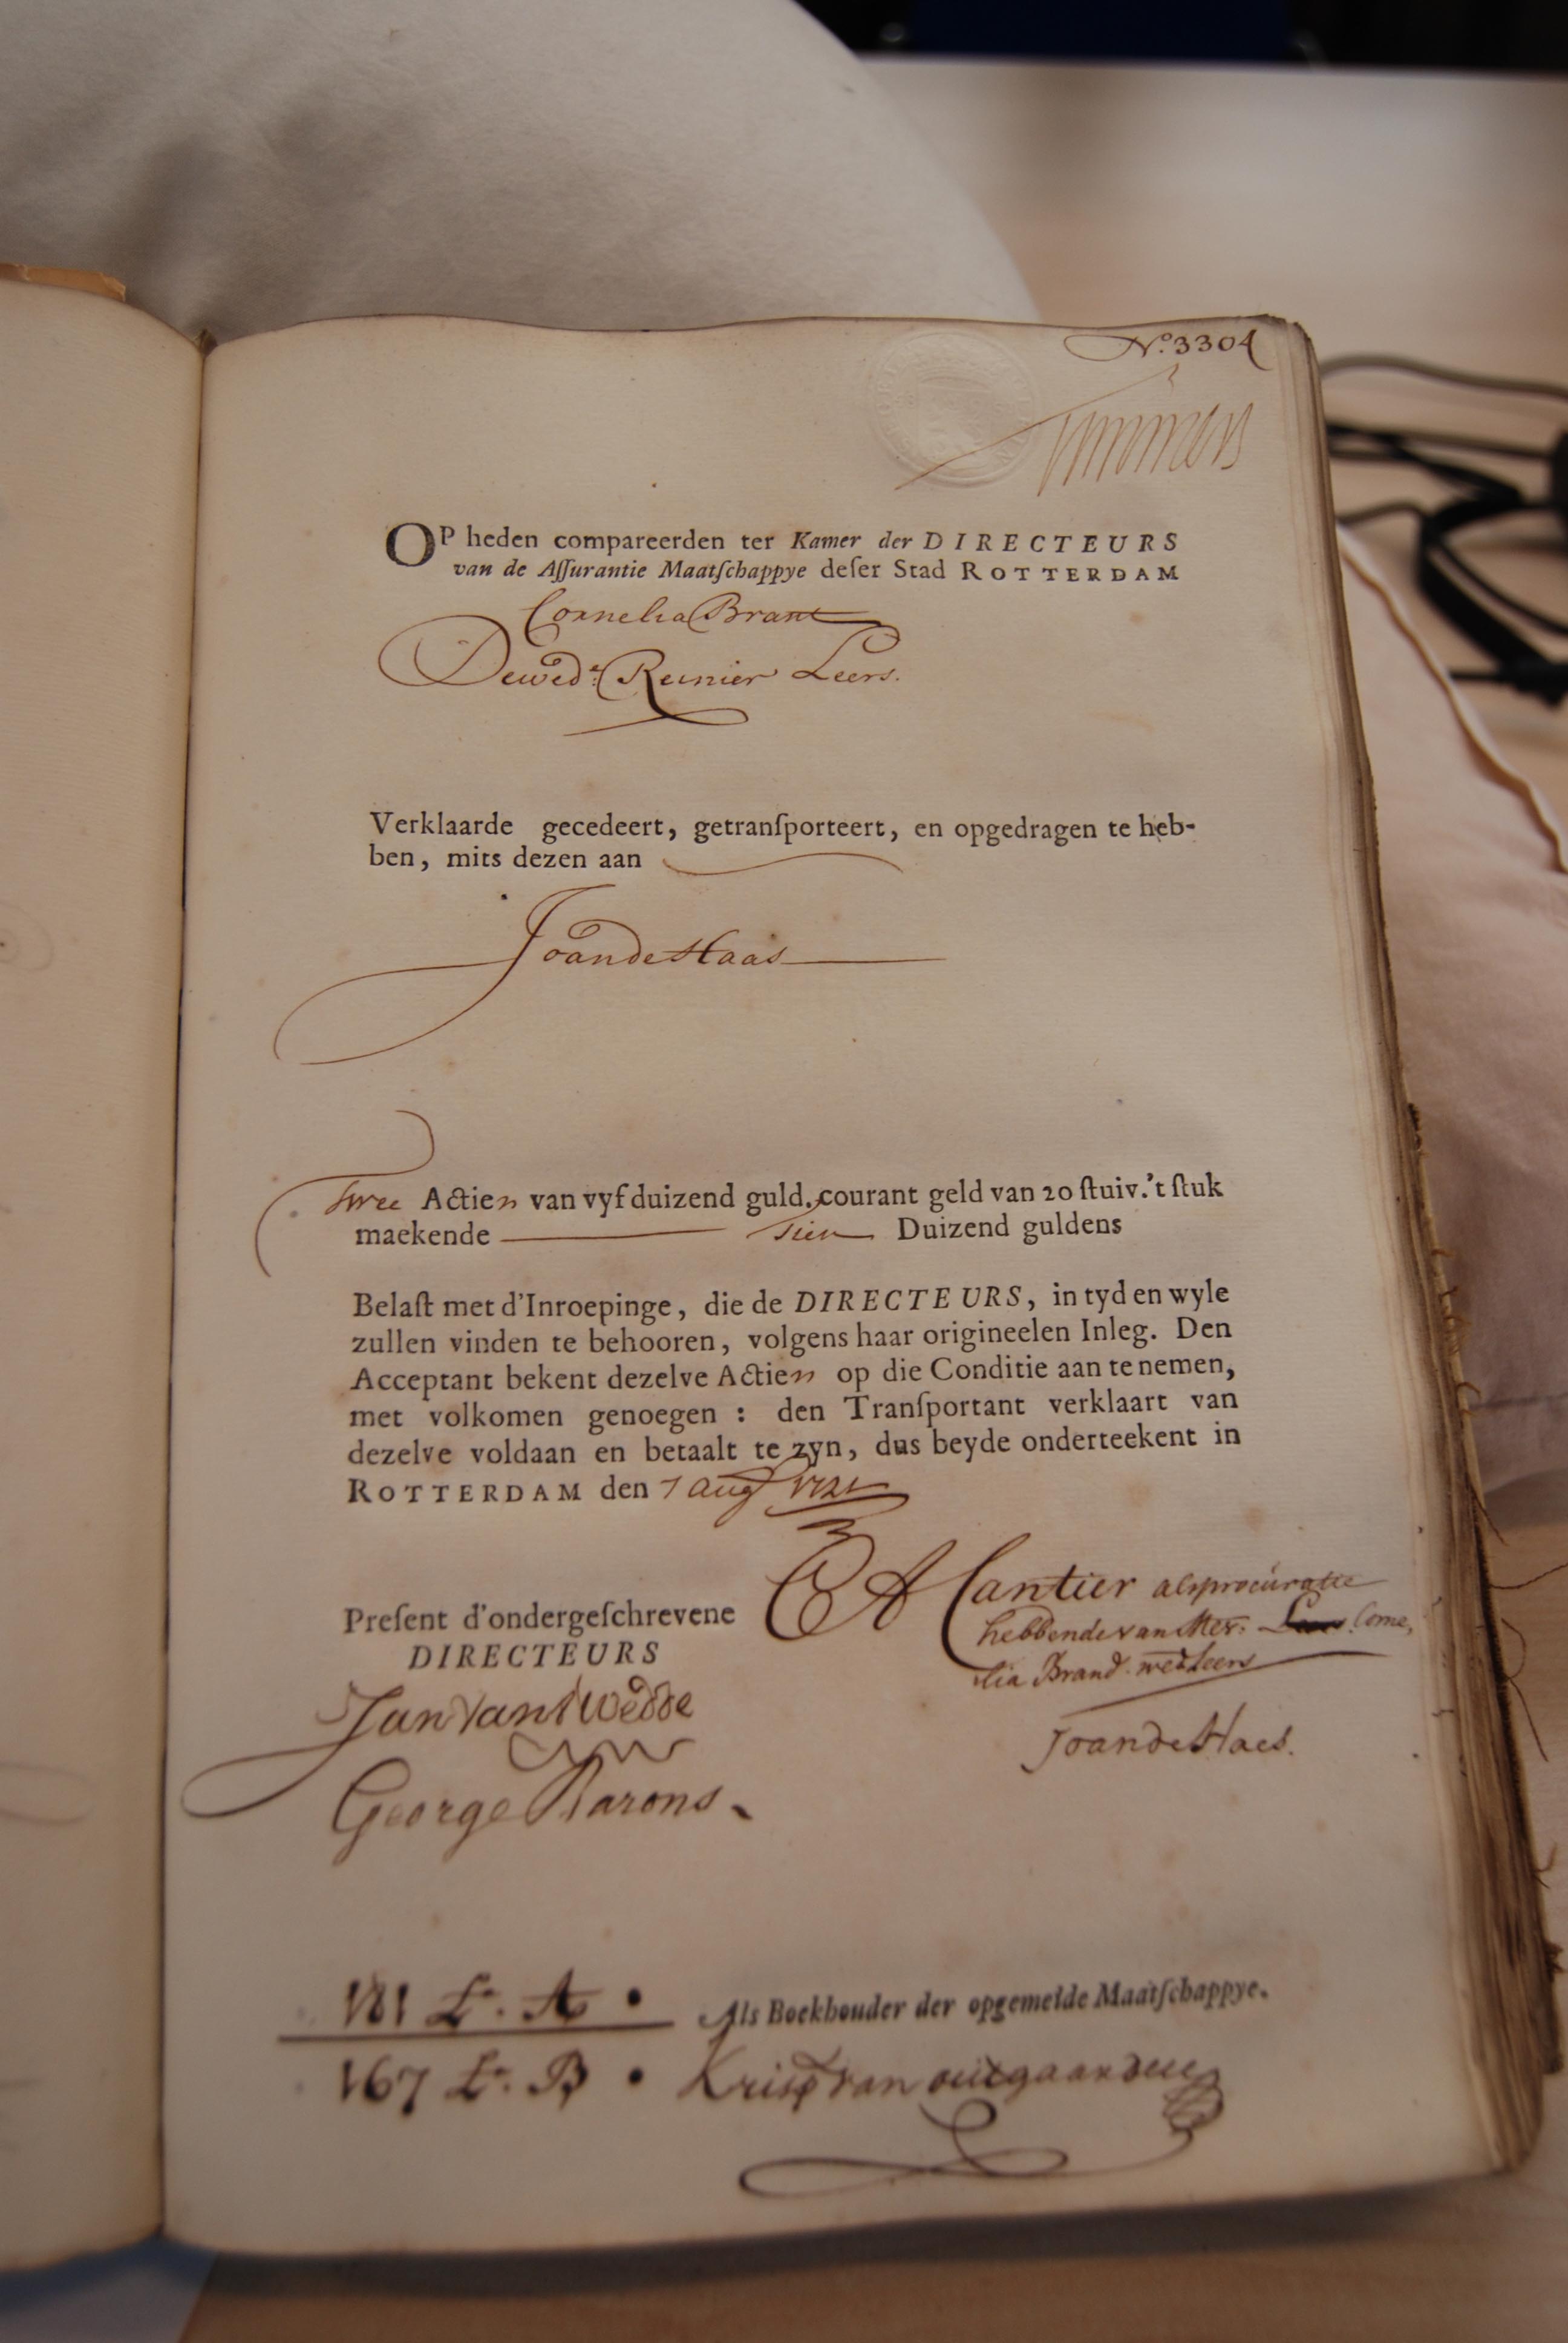 N.º 3304
Timmers
OP heden compareerden ter Kamer der DIRECTEURS
van de Aſſurantie Maatſchappye deſer Stad ROTTERDAM
Cornelia Brant
De wed.ᵉ Reinier Leers.
Verklaarde gecedeert, getranſporteert, en opgedragen te heb-
ben, mits dezen aan
Joan de Haas
Twee Actien van vyf duizend guld. courant geld van 20 ſtuiv. 't ſtuk
maekende Tien Duizend guldens
Belaſt met d'Inroepinge, die de DIRECTEURS, in tyd en wyle
zullen vinden te behooren, volgens haar origineelen Inleg. Den
Acceptant bekent dezelve Actien op die Conditie aan te nemen,
met volkomen genoegen : den Tranſportant verklaart van
dezelve voldaan en betaalt te zyn, dus beyde onderteekent in
ROTTERDAM den 7 aug 1721
A Cantier als procuratie
hebbende van Mev: Leers Corne,
lia Brand wed Leers
Preſent d'ondergeſchrevene
DIRECTEURS
Jan van t Wedde
Joan de Haes.
George Barons
181 Lr. A
Als Boekhouder der opgemelde Maatſchappye.
167 Lr. B
Krist van outgaarden